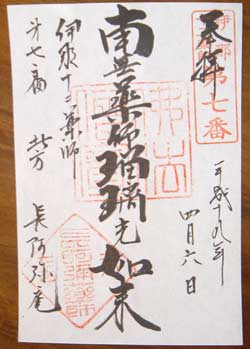 奉拝
第七番
平成十九年
四月六日
南無薬師瑠璃光如来
伊那十二薬師
第七番 北方 長阿弥庵